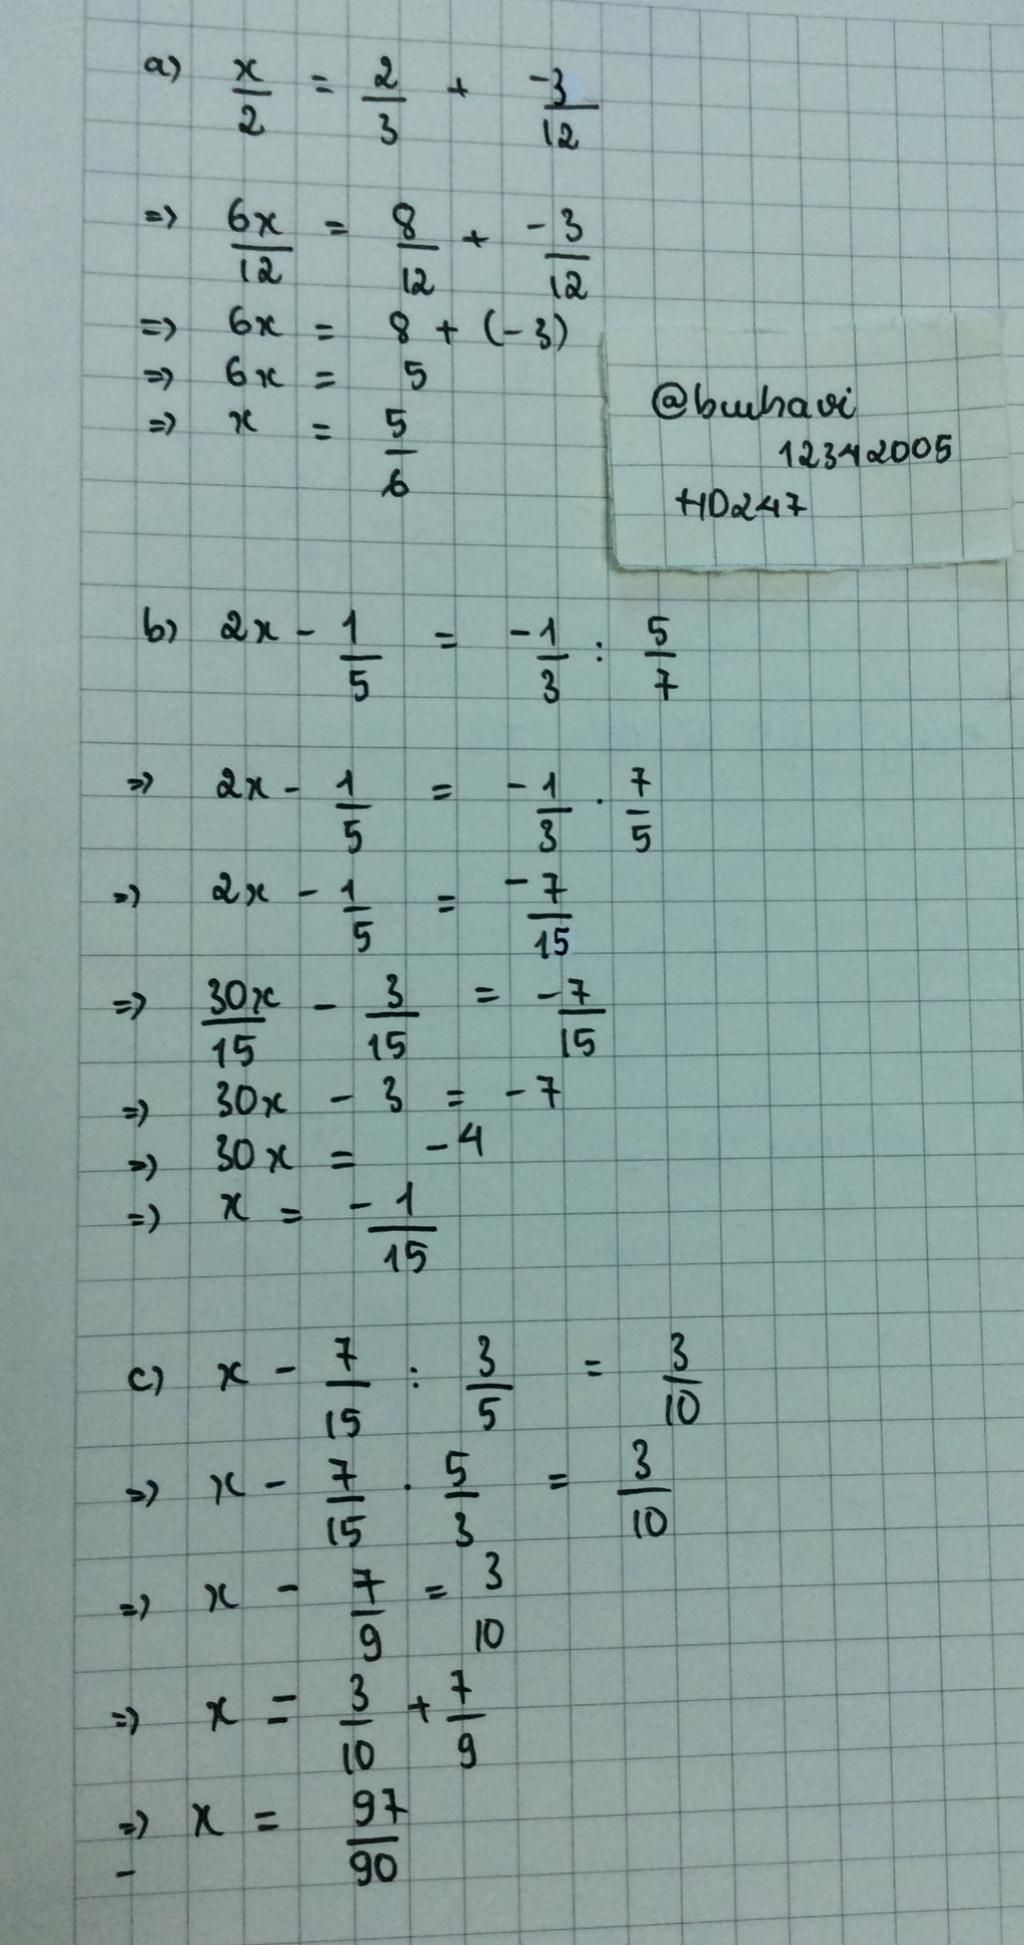 a) x/2 = 2/3 + -3/12
=> 6x/12 = 8/12 + -3/12
=> 6x = 8 + (-3)
=> 6x = 5
=> x = 5/6
@buihavi
12342005
HD247
b) 2x - 1/5 = -1/3 : 5/7
=> 2x - 1/5 = -1/3 . 7/5
=> 2x - 1/5 = -7/15
=> 30x/15 - 3/15 = -7/15
=> 30x - 3 = -7
=> 30x = -4
=> x = -1/15
c) x - 7/15 : 3/5 = 3/10
=> x - 7/15 . 5/3 = 3/10
=> x - 7/9 = 3 10
=> x = 3/10 + 7/9
=> x = 97/90
-